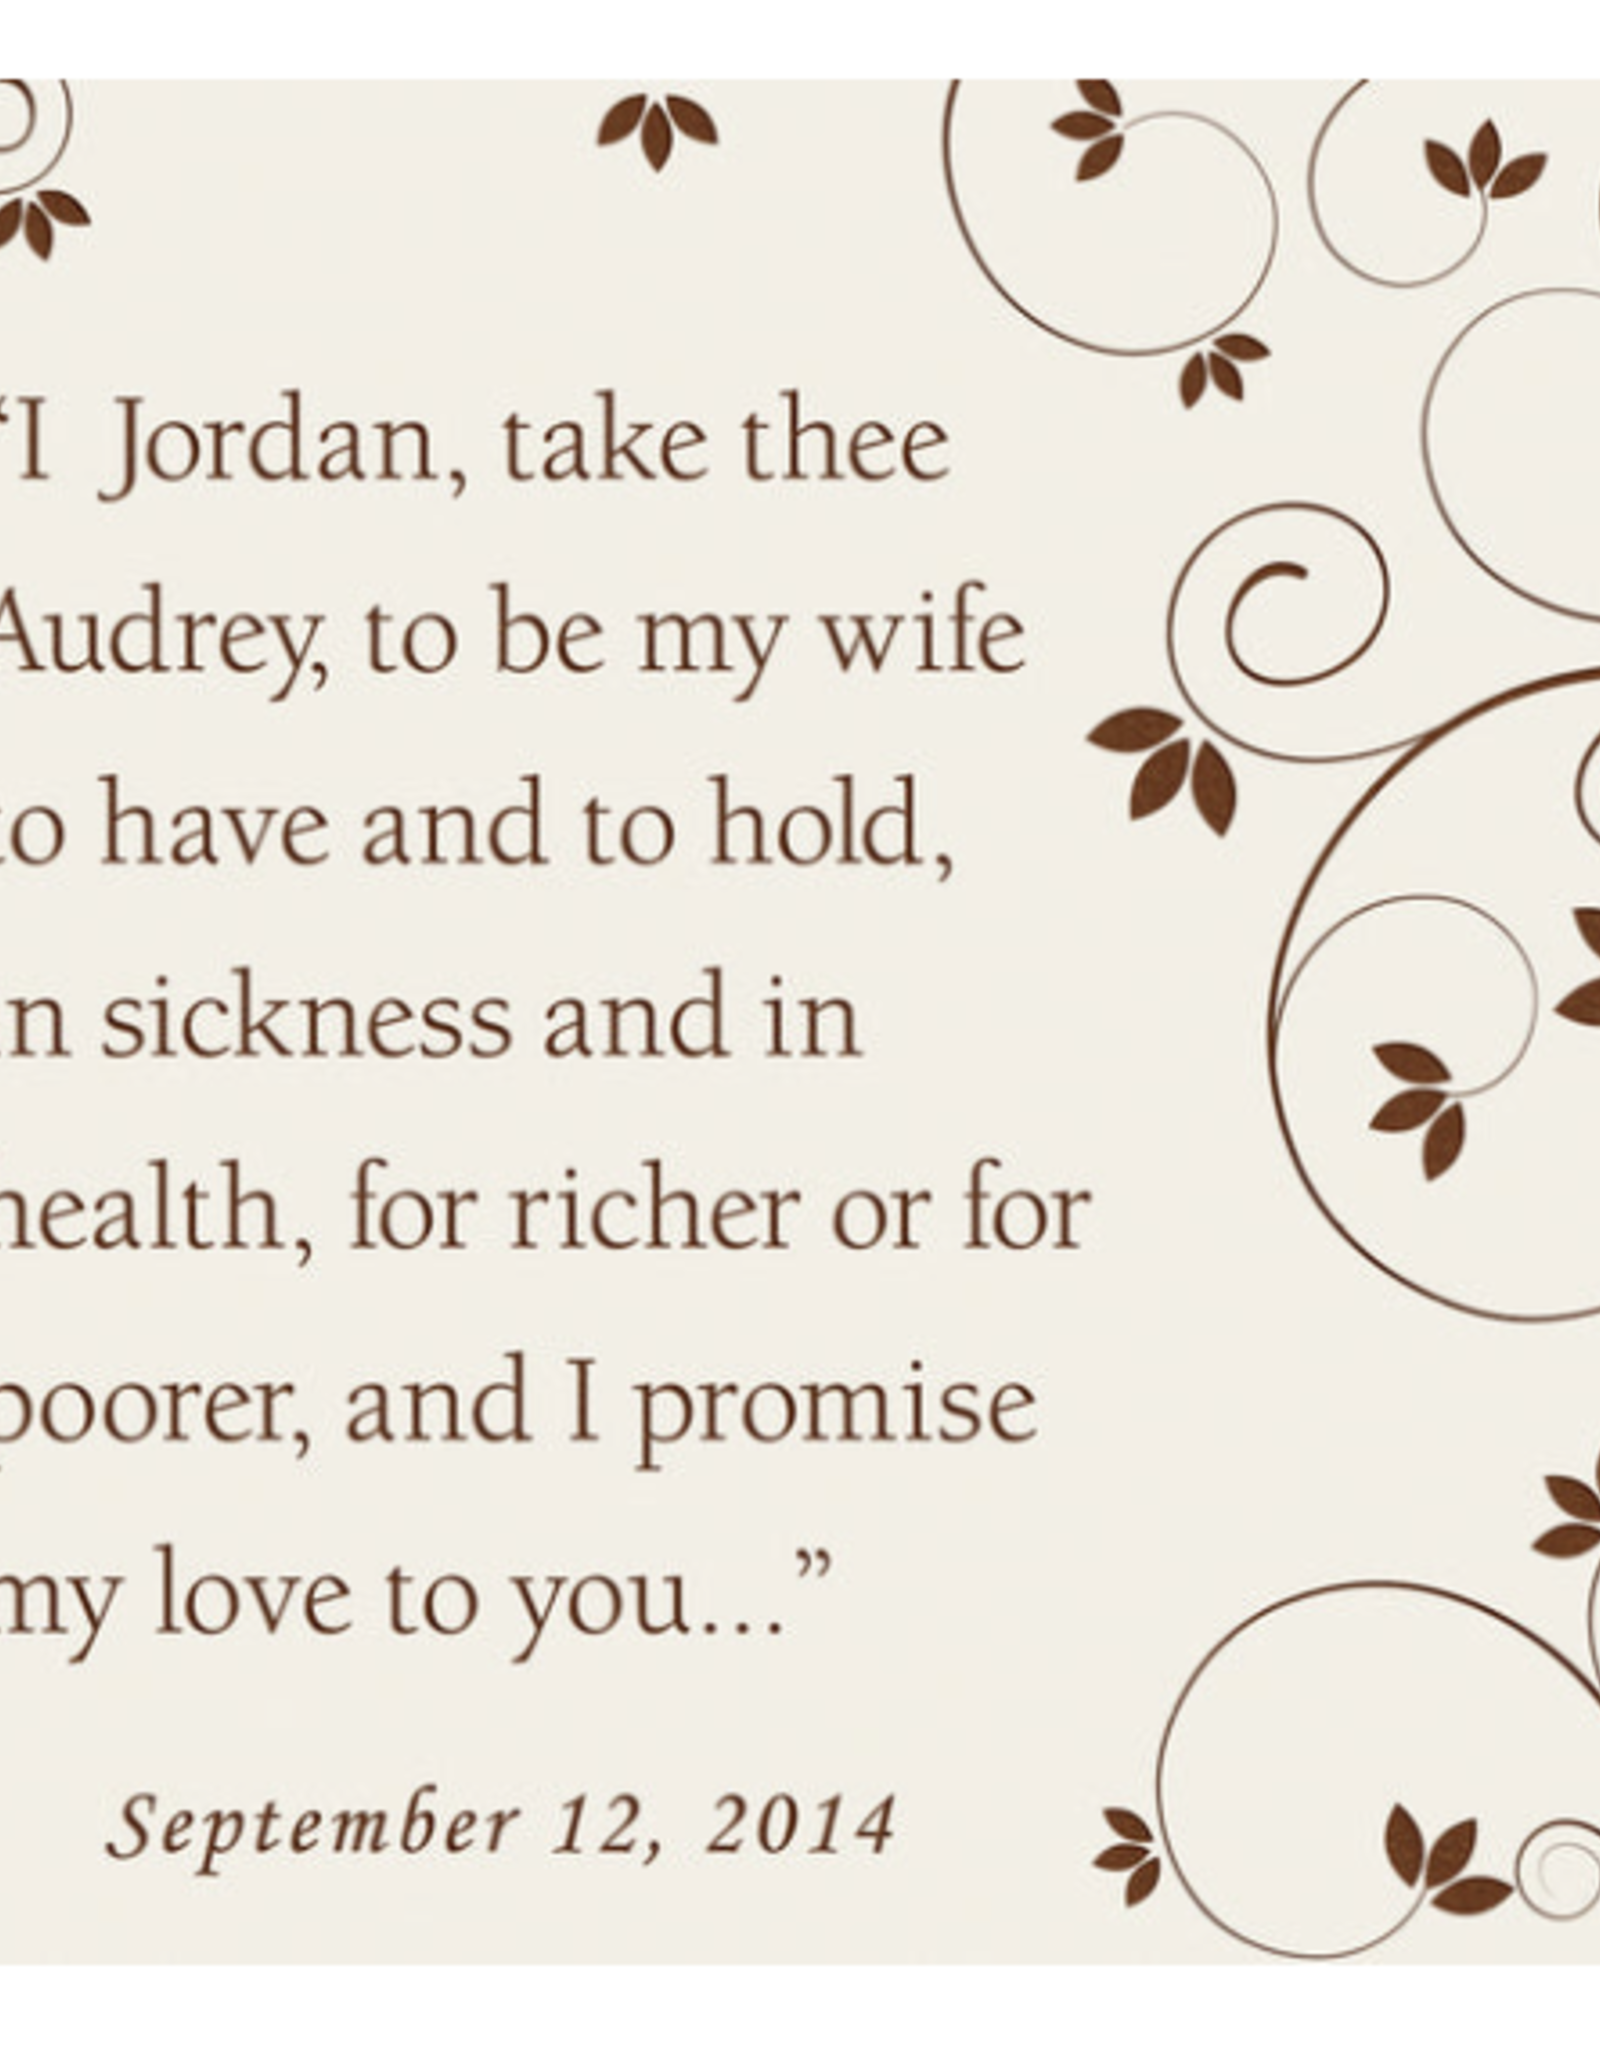 “I Jordan, take thee
Audrey, to be my wife
to have and to hold,
in sickness and in
health, for richer or for
poorer, and I promise
my love to you...”
September 12, 2014